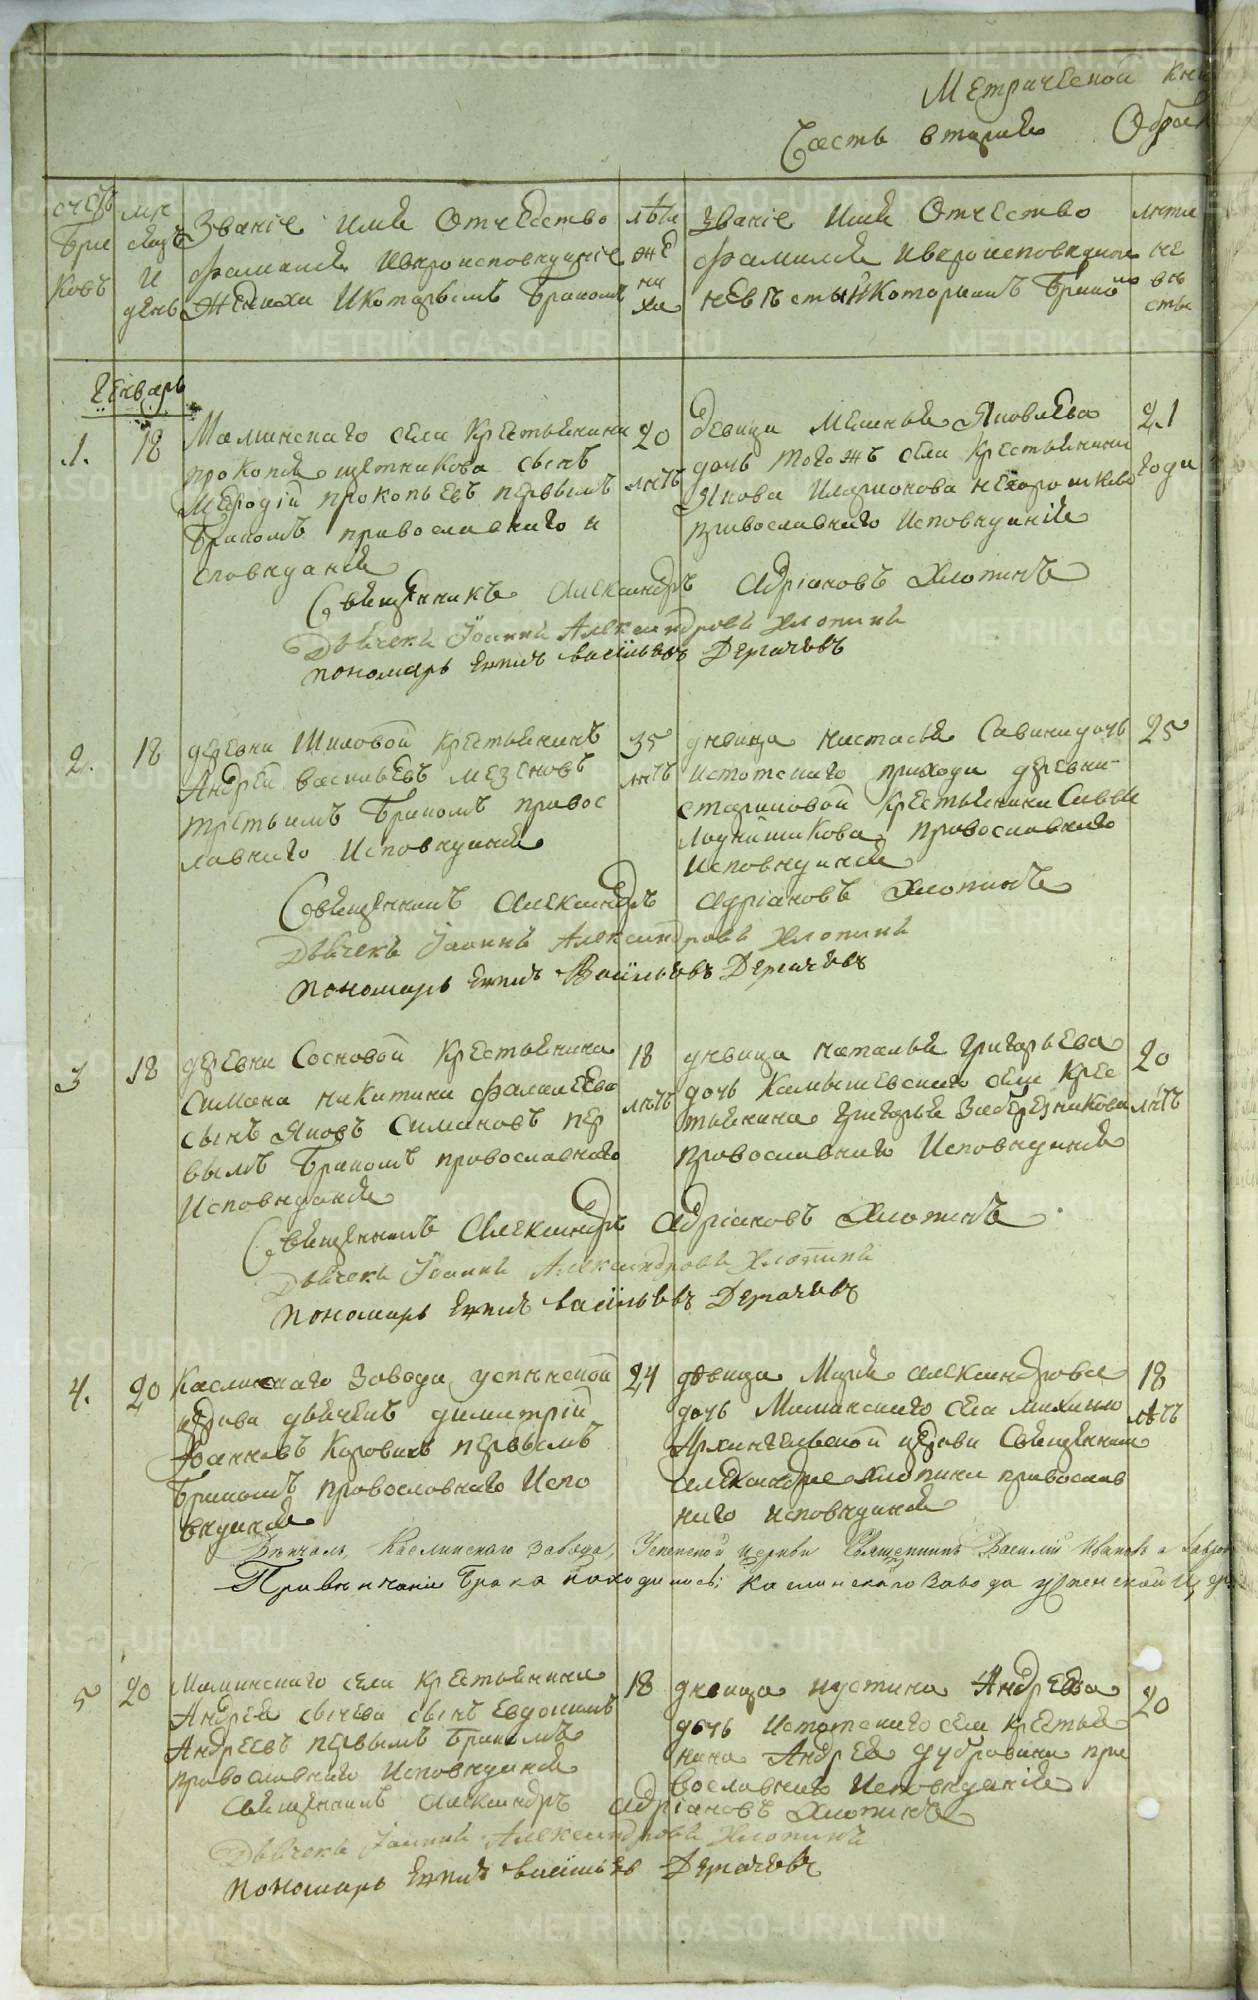 Метрической кни
Часть вторая О брак
счетъ браковъ
месяцъ и день
Званіе имя отчество фамилія и вероисповеданіе жениха и которымъ бракомъ
лѣта жениха
Званіе имя отчество фамилія и вероисповедание невѣсты и которымъ бракомъ
лѣта невѣсты
Генварь
.1.
18
Маминскаго села крестьянина
прокопия щетникова сынъ
Мефодій прокопьевъ первымъ
бракомъ православнаго и
споведанія
20
лѣтъ
девица Яковлева
дочь того жъ села крестьянина
Якова Илариюнова
православнаго исповеданія
21
года
Священникъ Александръ Адріановъ Хлопинъ
Дьячекъ Іоаннъ Александровъ Хлопинъ
пономарь васильевъ Дергачевъ
2.
18
деревни Шиловой крестьянинъ
Андрей васильевъ мезеновъ
третьимъ бракомъ правос
лавнаго исповеданія
35
лѣтъ
девица настасья Савина дочь
истокскаго прихода деревни
стариковой крестьянина Савы
православнаго
исповеданія
25
Священникъ Александръ Адріановъ Хлопинъ
Дьячекъ Іоаннъ Александровъ Хлопинъ
пономарь Васильевъ Дергачевъ
3
18
деревни Сосновой крестьянина
Симона никитина фалалеева
сынъ Яковъ Симоновъ пер
вымъ бракомъ православнаго
исповеданія
18
лѣтъ
девица наталья григорьева
дочь Камышевскаго села крес
тьянина григорья Заберезникова
православнаго исповеданія
20
лѣтъ
Священникъ Александръ Адріановъ Хлопинъ
Дьячекъ Іоаннъ Александровъ Хлопинъ
пономарь васильевъ Дергачевъ
4.
20
Каслинскаго завода успенской
церкви дьячекъ димитрій
Іоанновъ Коровинъ первымъ
бракомъ православнаго испо
веданія
24
девица Марія александрова
дочь Маминскаго села михаило
Архангельской церкви Священника
александра Хлопина православ
наго исповеданія
18
лѣтъ
Вѣнчалъ, Каслинскаго завода, Успенской церкви Священникъ Василій Ивановъ
При вѣнчаніи брака находились: Каслинскаго завода успенской
5
20
Маминскаго села крестьянина
Андрея сычева сынъ Евдокимъ
Андреевъ первымъ бракомъ
православнаго исповеданія
18
девица иустина Андреева
дочь Истокскаго села крестья
нина Андрея дубровина пра
вославнаго исповеданія
20
Священникъ Александръ Адріановъ Хлопинъ
Дьячекъ Іоаннъ Александровъ Хлопинъ
пономарь васильевъ Дергачевъ